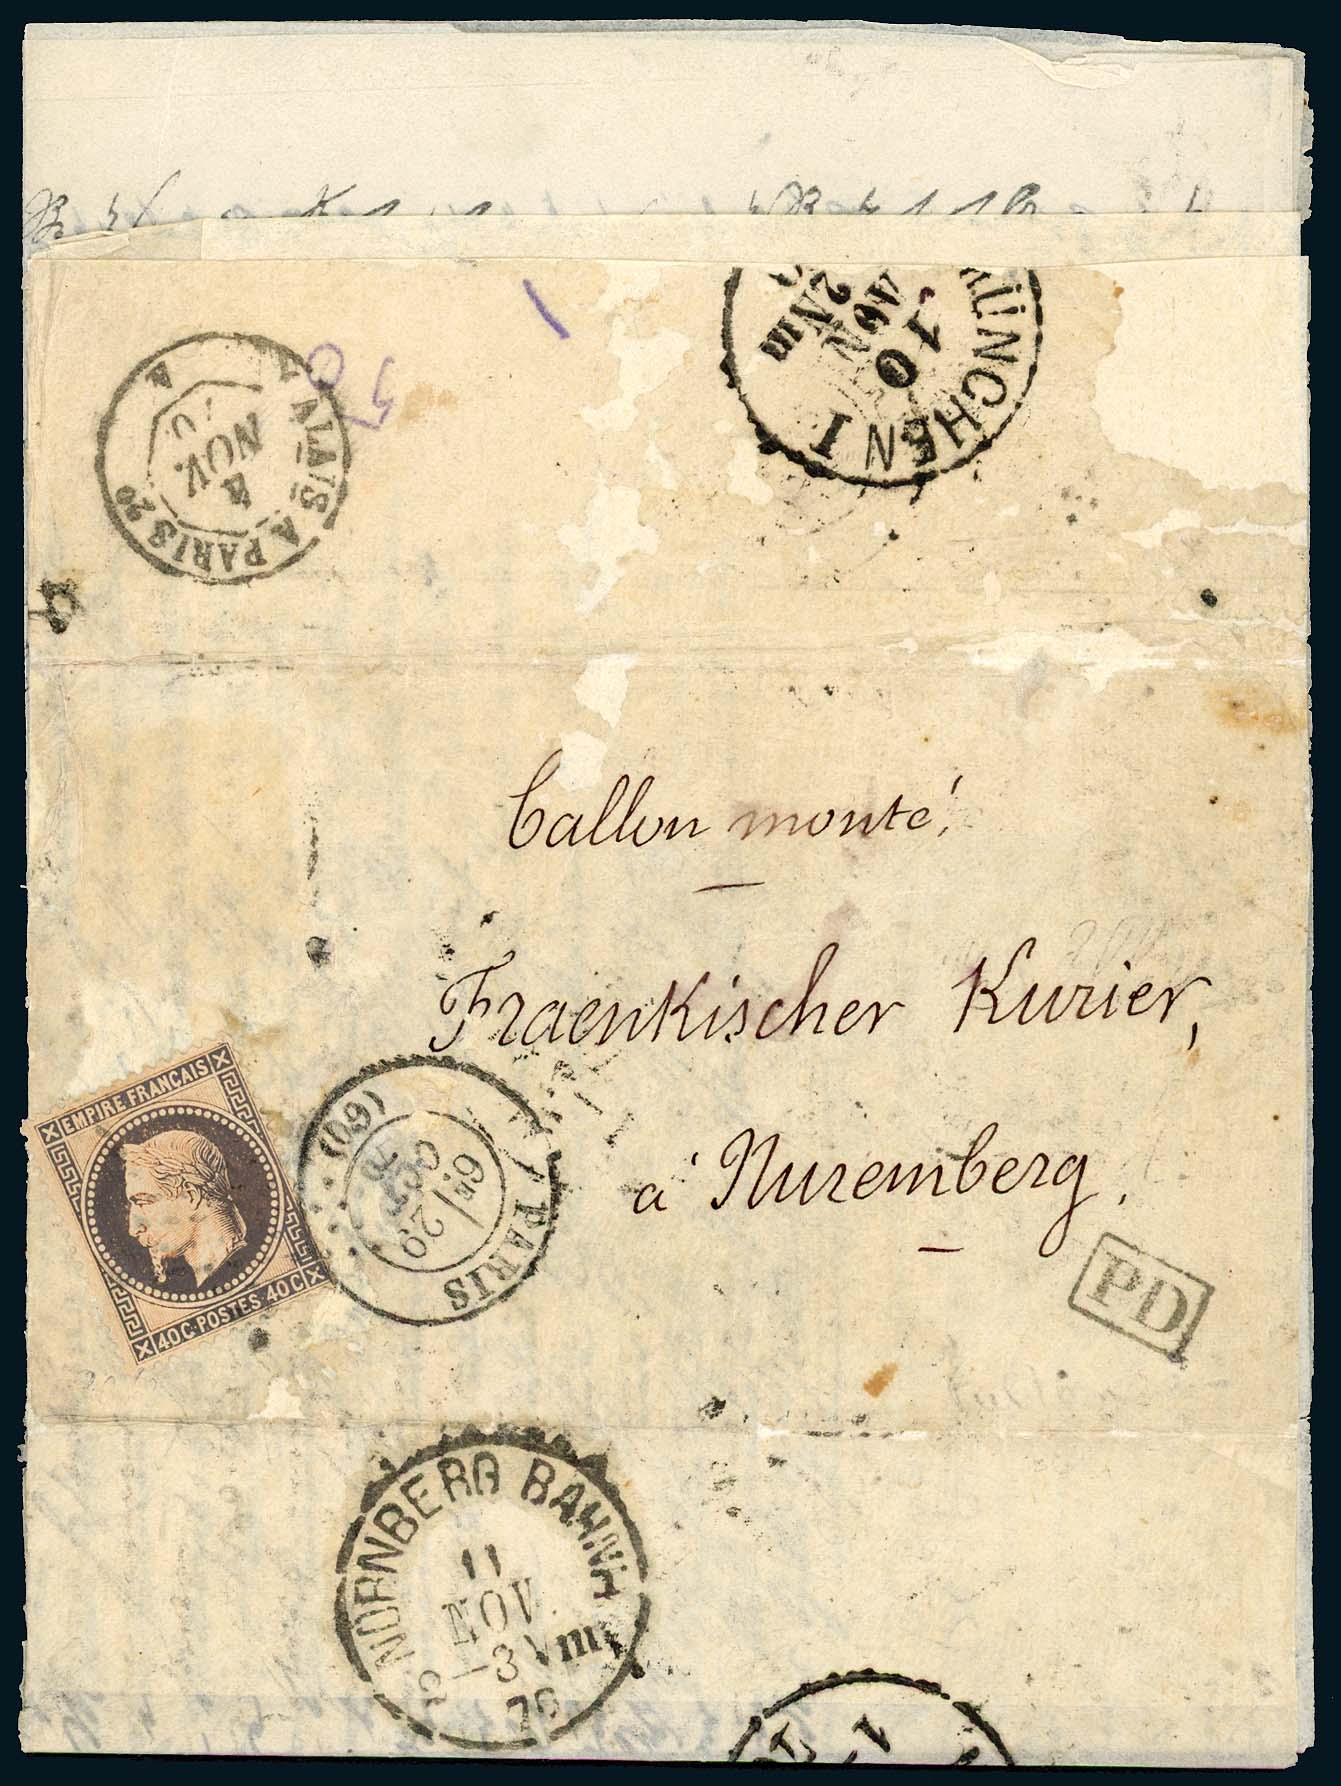 MÜNCHEN I
10
NOV
2 Nm
CALAIS A PARIS 2º
4
NOV.
70
Ballon monté!
Fraenkischer Kurier,
à Nuremberg.
EMPIRE FRANÇAIS
40 C POSTES 40 C
PARIS (60)
6E
29
OCT.
70
PD
NÜRNBERG BAHNH
11
NOV
3 Vm
70